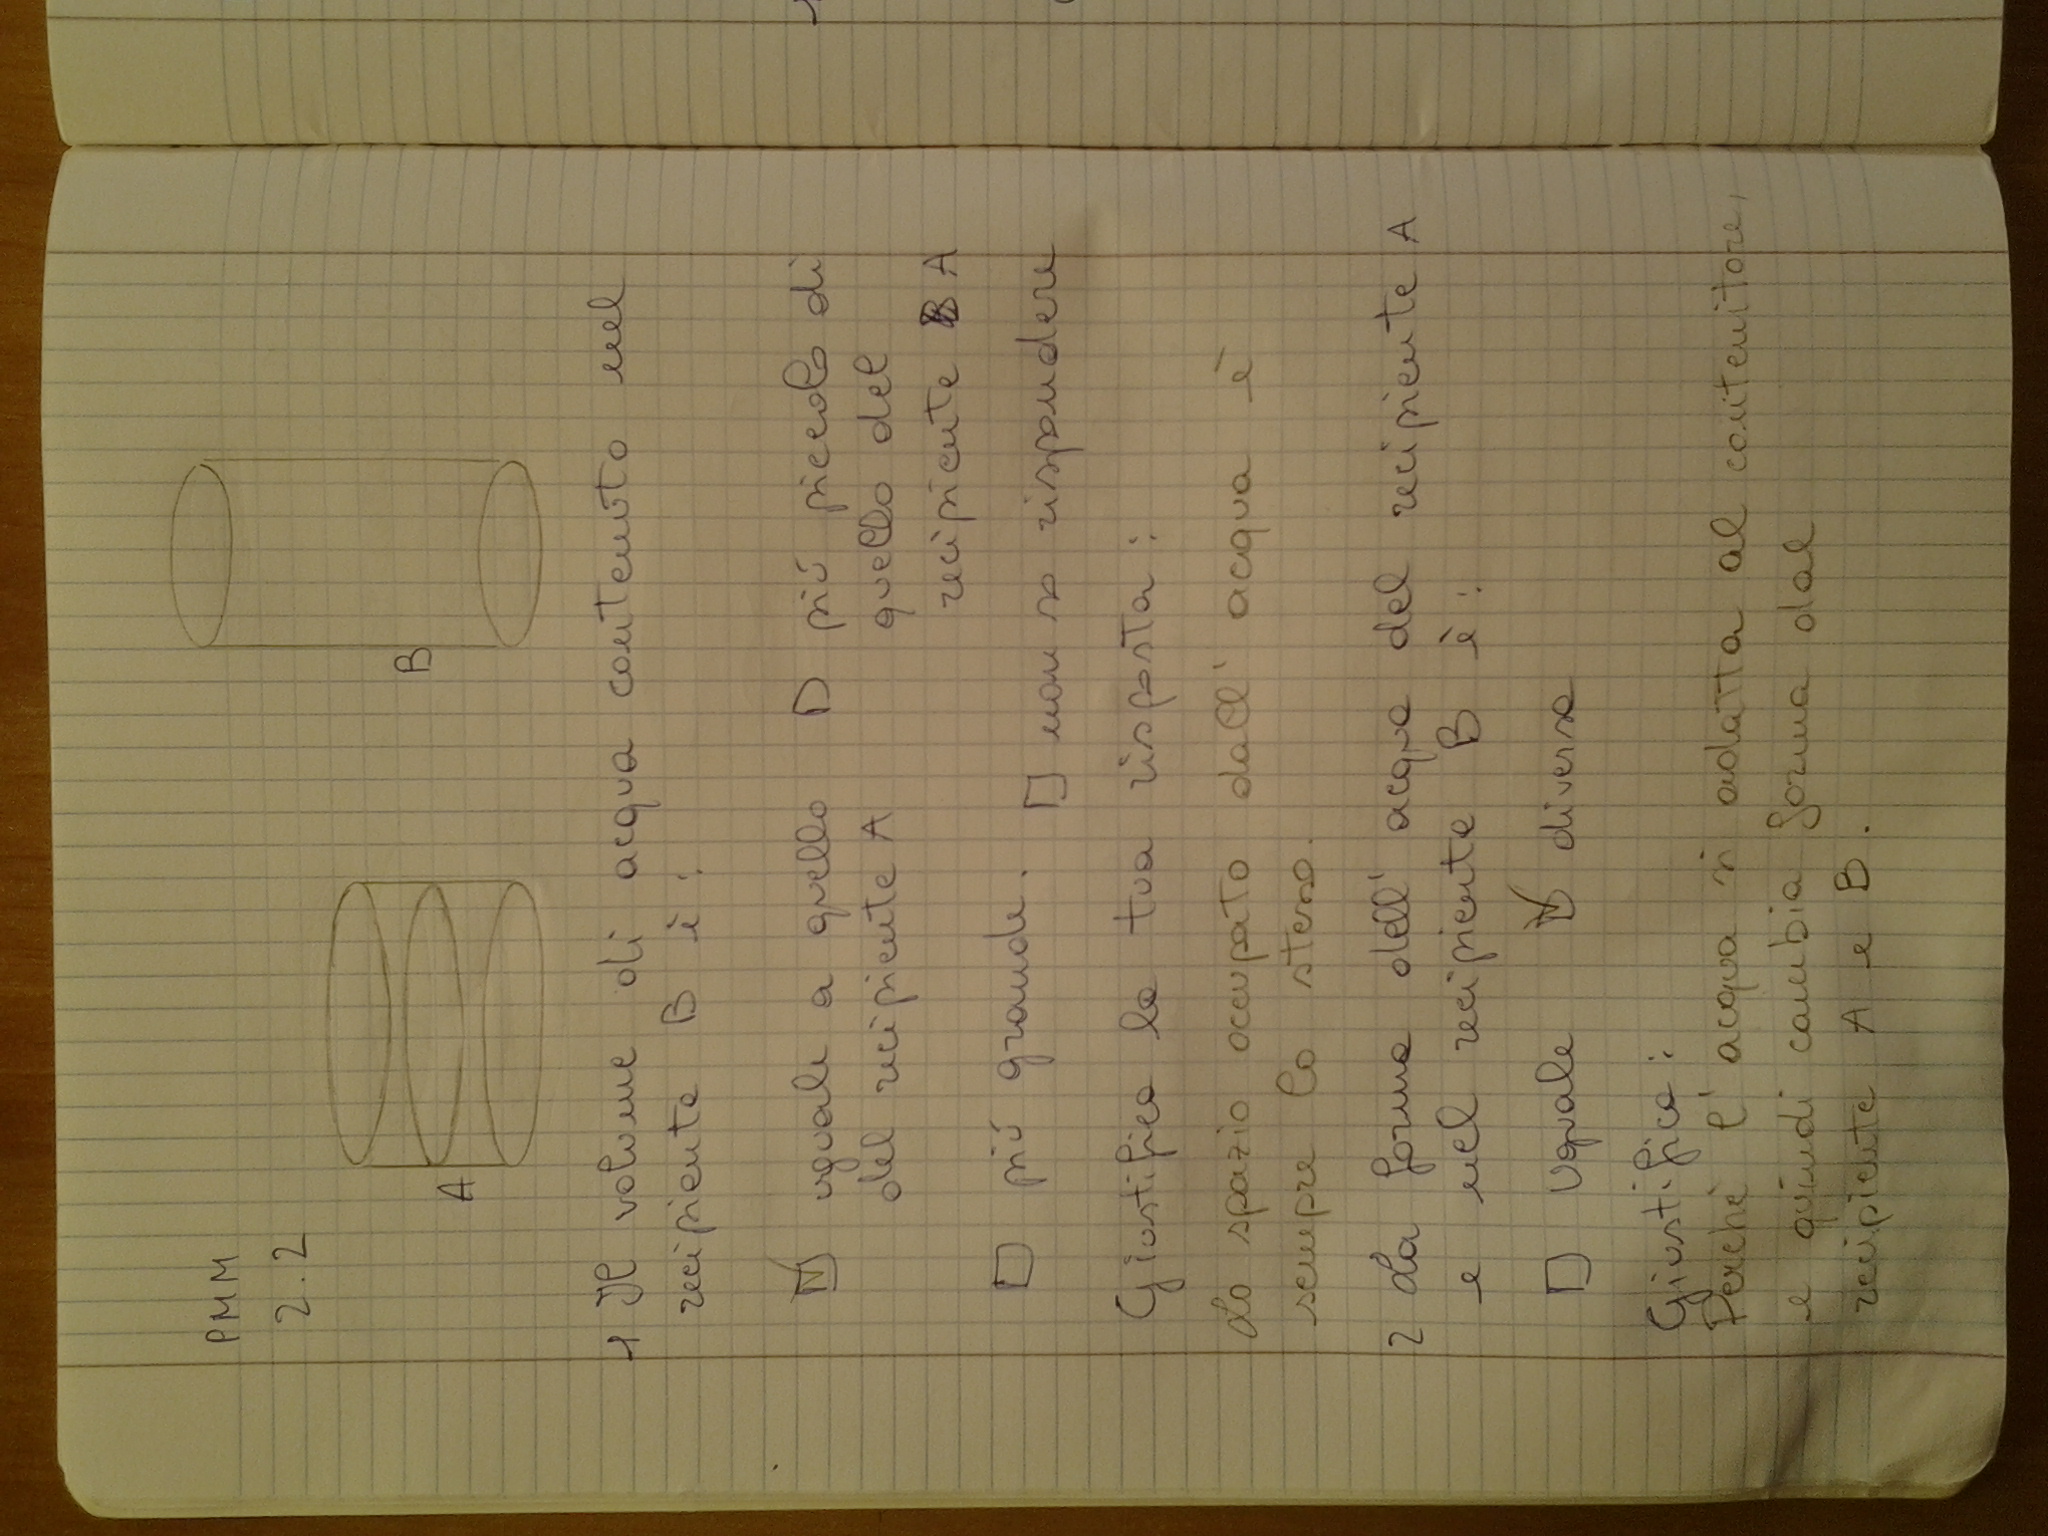 PMM
2.2
A
B
1 Il volume di acqua contenuto nel
recipiente B è:
uguale a quello
del recipiente A
più piccolo di
quello del
recipiente A
più grande.
non so rispondere
Giustifica la tua risposta:
Lo spazio occupato dall'acqua è
sempre lo stesso.
2 La forma dell'acqua del recipiente A
e nel recipiente B è:
Uguale
diversa
Giustifica:
Perché l'acqua si adatta al contenitore,
e quindi cambia forma dal
recipiente A e B.